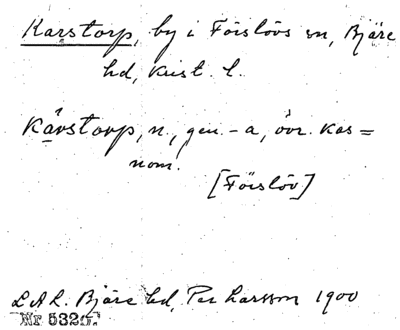 Karstorp, by i Förslövs sn, Bjäre
hd, Krist. l.
Kårstorp, n., gen. -a, övr. kas=
nom.
[Förslöv]
LAL. Bjäre hd, Per Larsson 1900
Nr 5320.